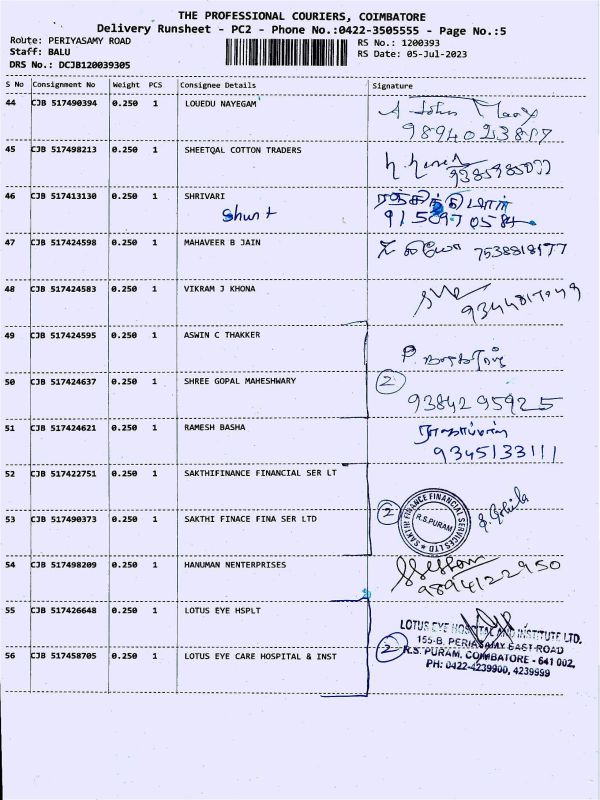 THE PROFESSIONAL COURIERS, COIMBATORE
Delivery Runsheet - PC2 - Phone No.:0422-3505555 - Page No.:5
Route: PERIYASAMY ROAD RS No.: 1200393
Staff: BALU RS Date: 05-Jul-2023
DRS No.: DCJB120039305
S No Consignment No Weight PCS Consignee Details Signature
44 CJB 517490394 0.250 1 LOUEDU NAYEGAM
A John Mary
9894023817
45 CJB 517498213 0.250 1 SHEETQAL COTTON TRADERS
9385985077
46 CJB 517413130 0.250 1 SHRIVARI
Shunt
9150970584
47 CJB 517424598 0.250 1 MAHAVEER B JAIN
7538818177
48 CJB 517424583 0.250 1 VIKRAM J KHONA
49 CJB 517424595 0.250 1 ASWIN C THAKKER
50 CJB 517424637 0.250 1 SHREE GOPAL MAHESHWARY
2
9384295925
51 CJB 517424621 0.250 1 RAMESH BASHA
9345133111
52 CJB 517422751 0.250 1 SAKTHIFINANCE FINANCIAL SER LT
53 CJB 517490373 0.250 1 SAKTHI FINACE FINA SER LTD
2
SAKTHI FINANCE FINANCIAL SERVICES LTD
R.S.PURAM
54 CJB 517498209 0.250 1 HANUMAN NENTERPRISES
9894122950
55 CJB 517426648 0.250 1 LOTUS EYE HSPLT
LOTUS EYE HOSPITAL AND INSTITUTE LTD.
155-B, PERIASAMY EAST ROAD
56 CJB 517458705 0.250 1 LOTUS EYE CARE HOSPITAL & INST
2
R.S. PURAM, COIMBATORE - 641 002.
PH: 0422-4239900, 4239999